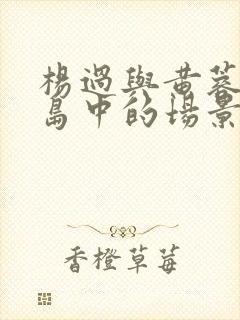 楊過與黃蓉
島中的場景
香橙草莓